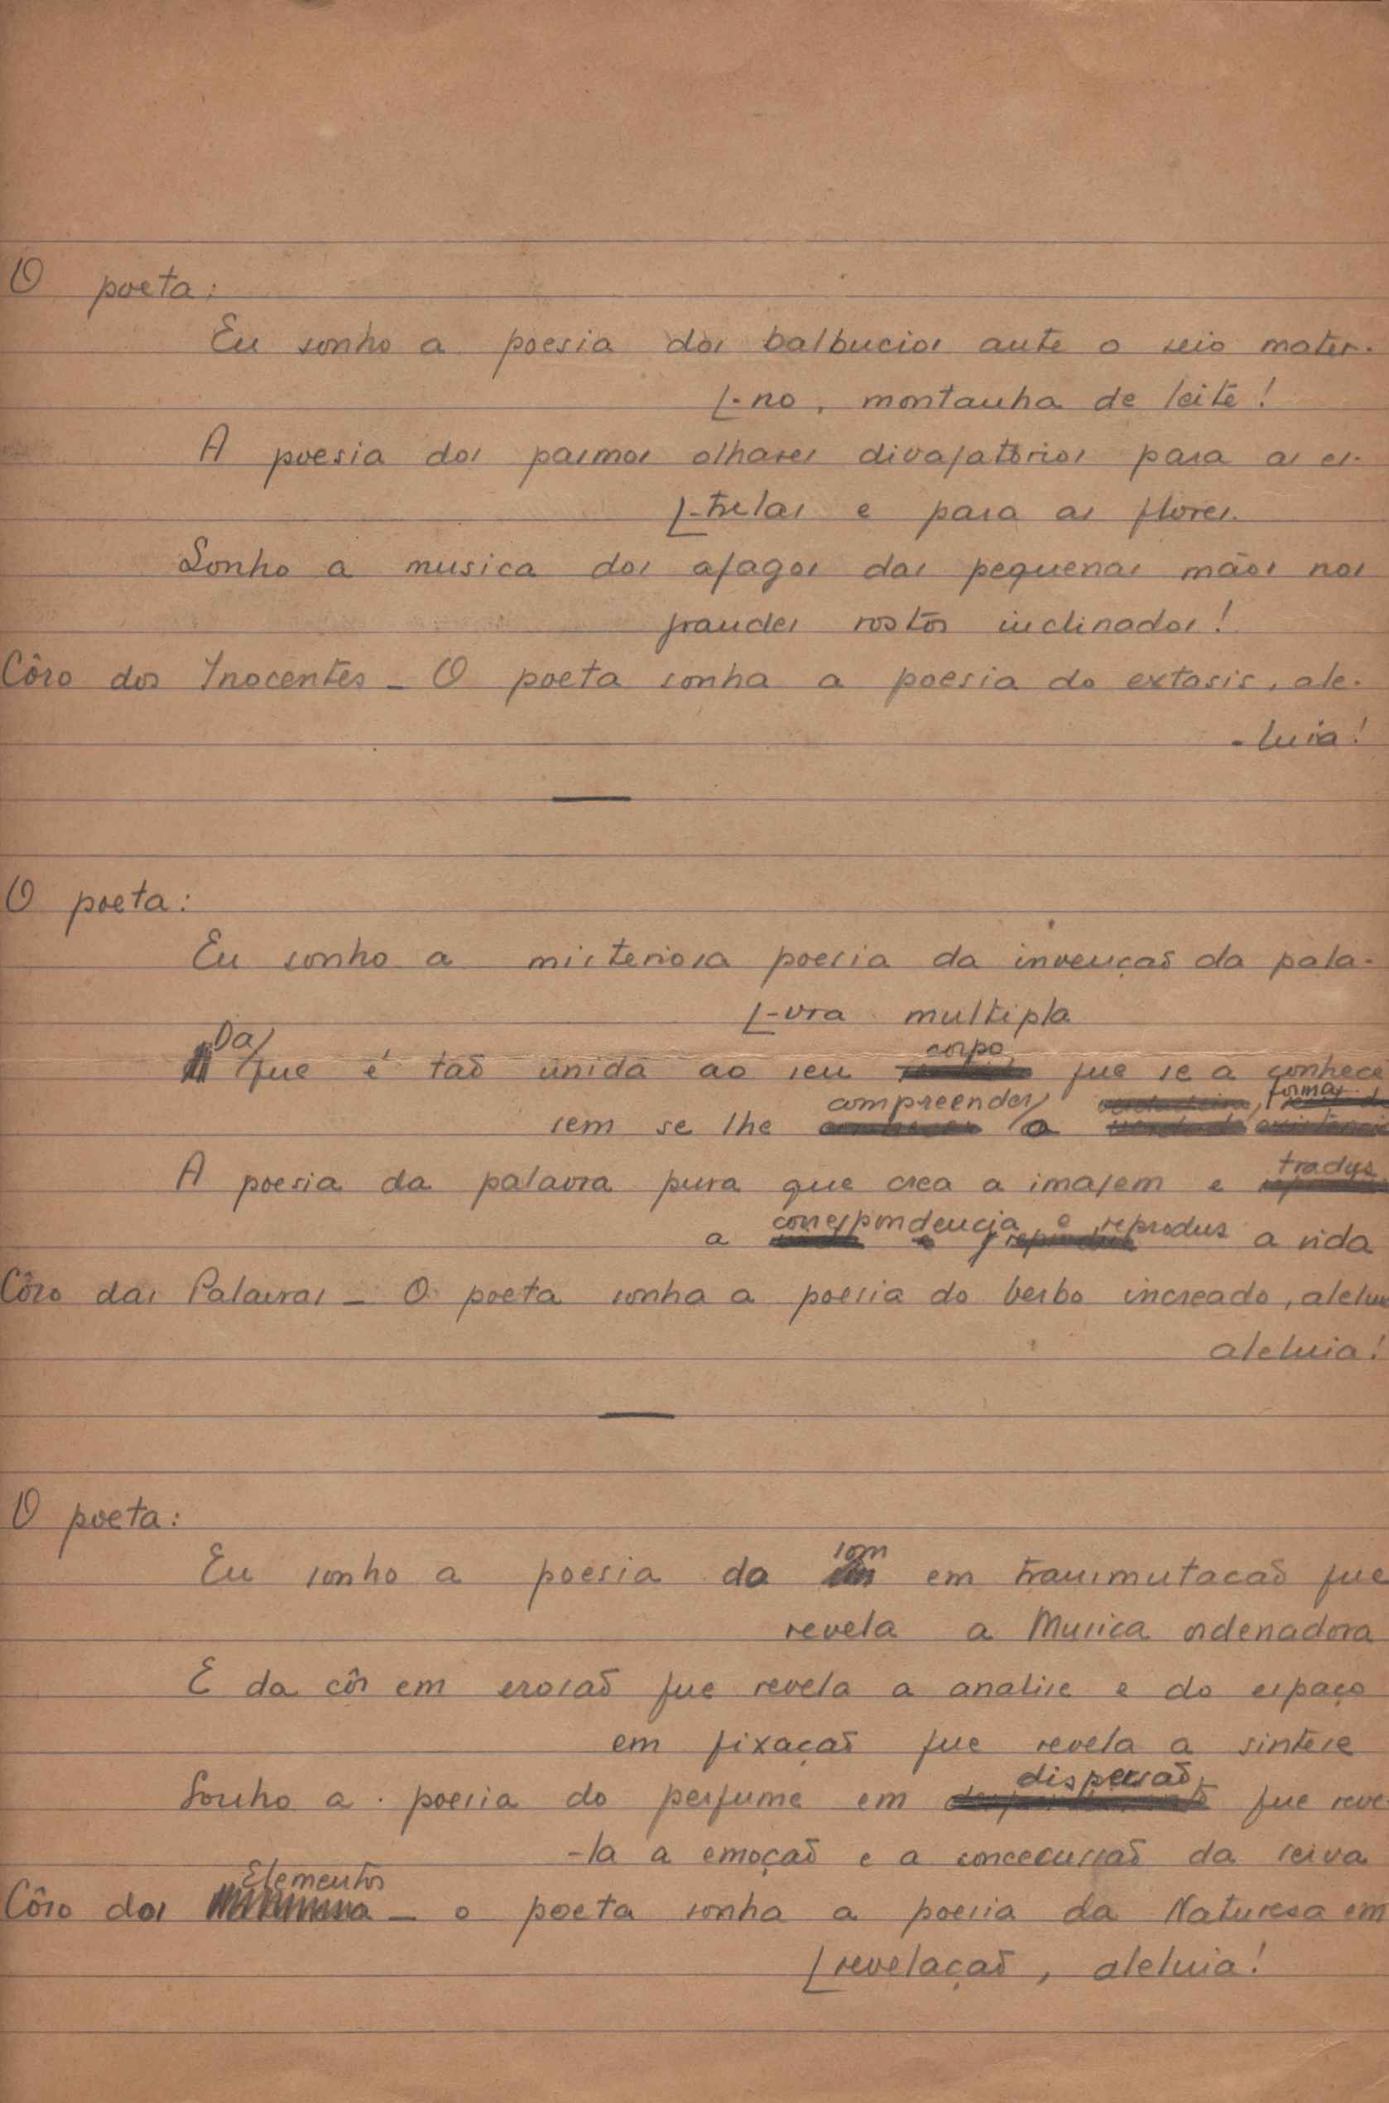 O poeta:
Eu sonho a poesia dos balbucios ante o seio mater-
-no, montanha de leite!
A poesia dos pasmos olhares divagatórios para as es-
-trelas e para as flores.
Sonho a musica dos afagos das pequenas mãos nos
grandes rostos inclinados!
Côro dos Inocentes - O poeta sonha a poesia do extasis, ale-
-luia!
O poeta:
Eu sonho a misteriosa poesia da invenção da pala-
-vra multipla
Da corpo
que é tão unida ao seu que se a conhece
compreender formas
sem se lhe a
tradus
A poesia da palavra pura que crea a imagem e
correspondencia e reprodus
a a vida
Côro das Palavras - O poeta sonha a poesia do verbo increado, alelu
aleluia!
O poeta:
som
Eu sonho a poesia do em transmutacão que
revela a Musica ordenadora
E da côr em erosão que revela a analise e do espaço
em fixação que revela a sintese
dispersão
Sonho a poesia do perfume em que reve-
-la a emoção e a da seiva
Elementos
Côro dos - o poeta sonha a poesia da Naturesa em
revelação, aleluia!